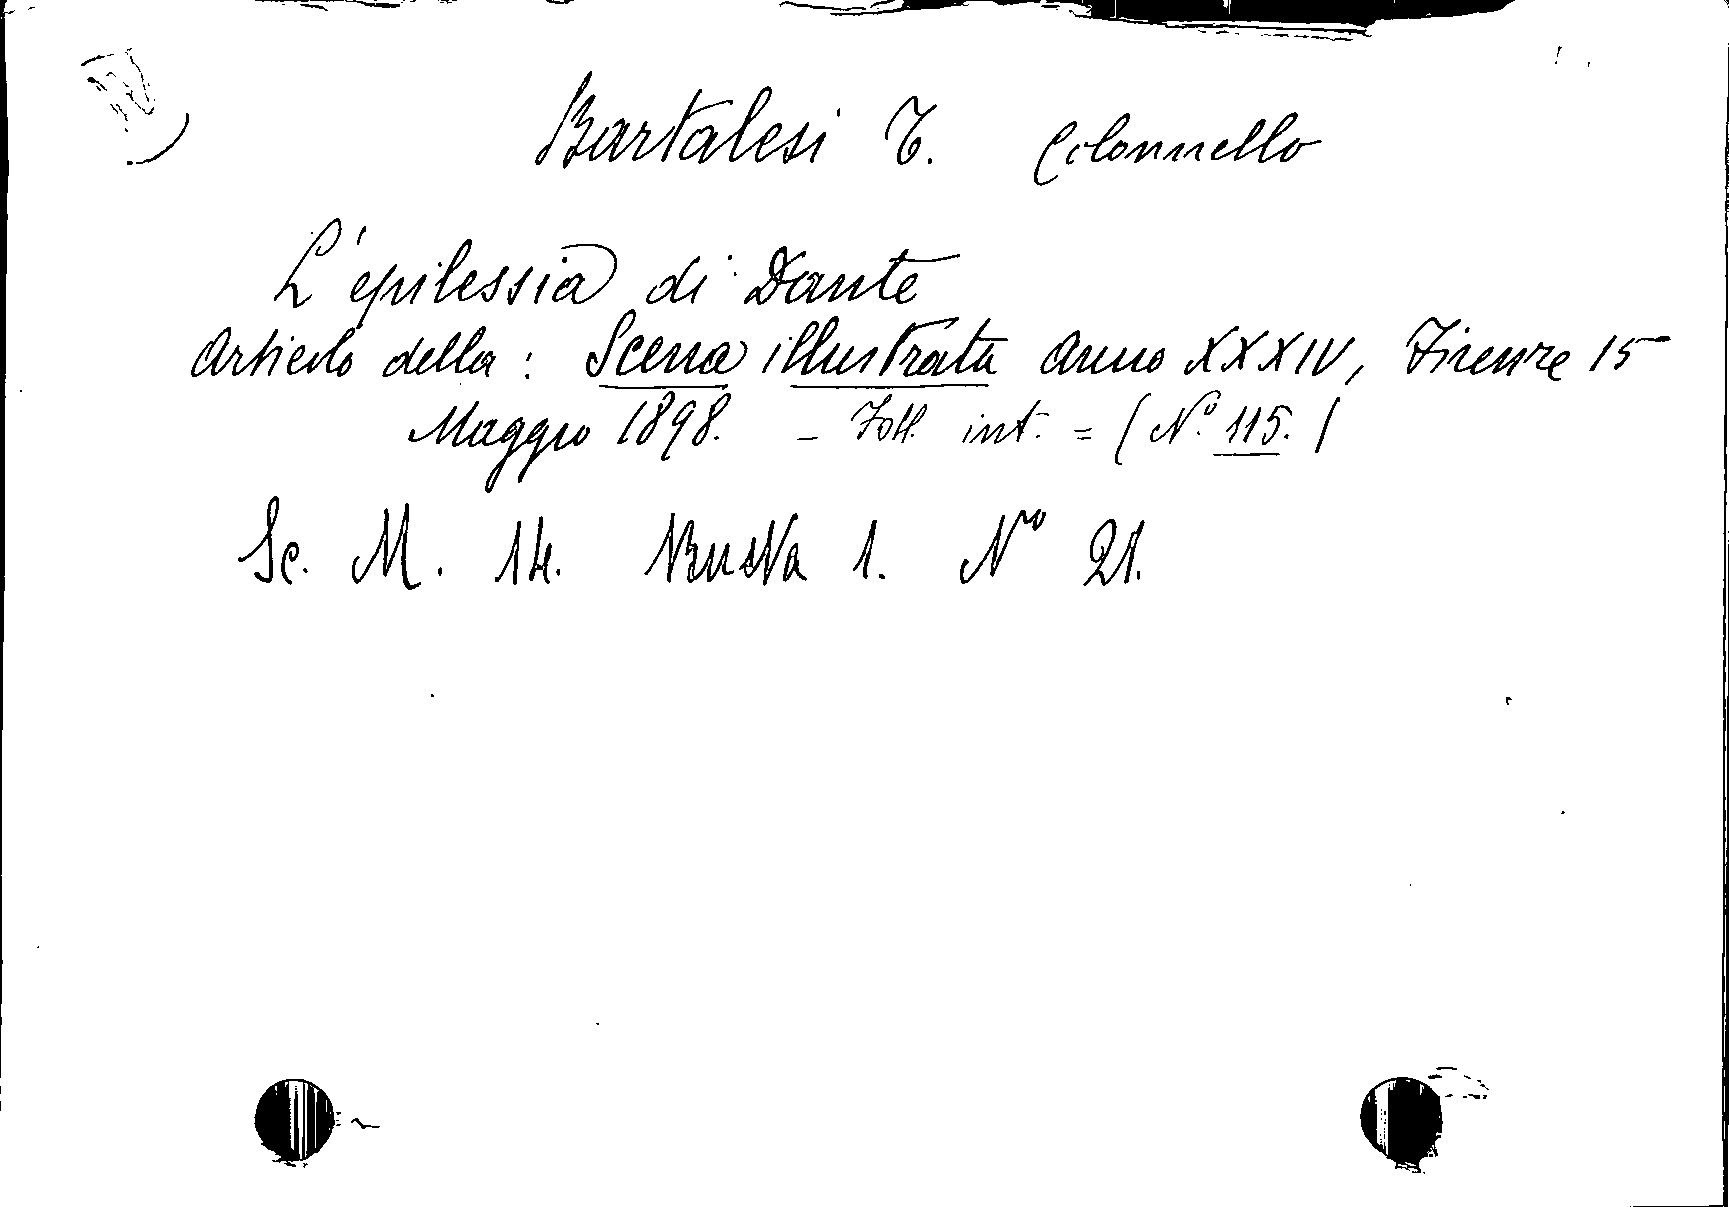 Bartalesi T. Colonnello
L'epilessia di Dante
Articolo della: Scena illustrata Anno XXXIV, Firenze 15
Maggio 1898. – Foll. int. = (N.° 115.)
Sc. M. 14. Busta 1. Nro 21.